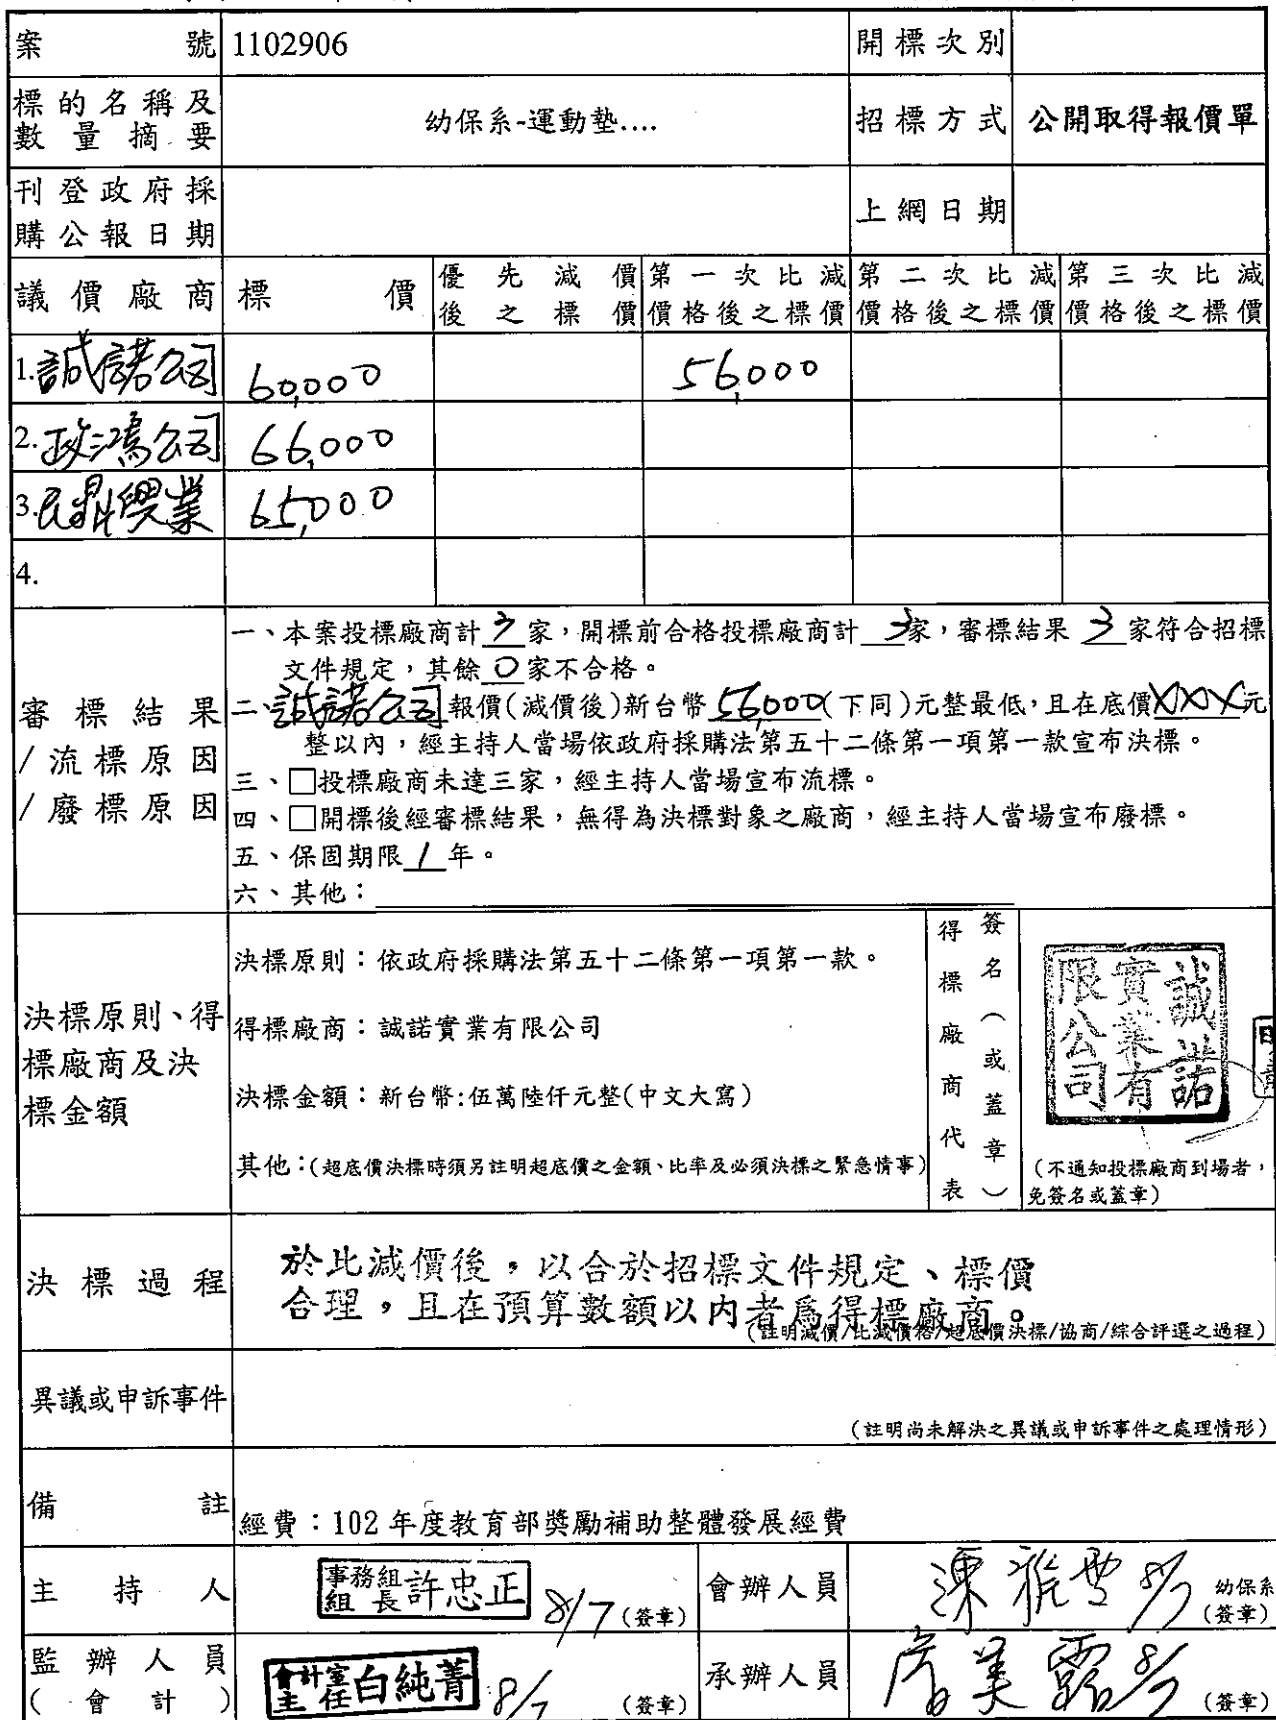 案 號 1102906 開標次別
標的名稱及數量摘要 幼保系-運動墊.... 招標方式 公開取得報價單
刊登政府採購公報日期 上網日期
議價廠商 標價 優先減價後之標價 第一次比減價格後之標價 第二次比減價格後之標價 第三次比減價格後之標價
1.誠諾公司 60,000 56,000
2.政鴻公司 66,000
3.民鼎興業 65,000
4.
審標結果/流標原因/廢標原因
一、本案投標廠商計 3 家，開標前合格投標廠商計 3家，審標結果 3 家符合招標
文件規定，其餘 0 家不合格。
二、誠諾公司報價(減價後)新台幣 56,000(下同)元整最低，且在底價XXX元
整以內，經主持人當場依政府採購法第五十二條第一項第一款宣布決標。
三、□投標廠商未達三家，經主持人當場宣布流標。
四、□開標後經審標結果，無得為決標對象之廠商，經主持人當場宣布廢標。
五、保固期限 1 年。
六、其他：
決標原則、得標廠商及決標金額
決標原則：依政府採購法第五十二條第一項第一款。
得標廠商：誠諾實業有限公司
決標金額：新台幣:伍萬陸仟元整(中文大寫)
其他：(超底價決標時須另註明超底價之金額、比率及必須決標之緊急情事)
得標廠商代表
簽名（或蓋章）
誠諾實業有限公司
(不通知投標廠商到場者，
免簽名或蓋章)
決標過程
於比減價後，以合於招標文件規定、標價
合理，且在預算數額以內者為得標廠商。
(註明減價/比減價格/超底價決標/協商/綜合評選之過程)
異議或申訴事件
(註明尚未解決之異議或申訴事件之處理情形)
備註 經費：102 年度教育部獎勵補助整體發展經費
主持人 事務組組長 許忠正 8/7 (簽章) 會辦人員 8/7 幼保系 (簽章)
監辦人員(會計) 會計室主任 白純菁 8/7 (簽章) 承辦人員 美露 8/7 (簽章)